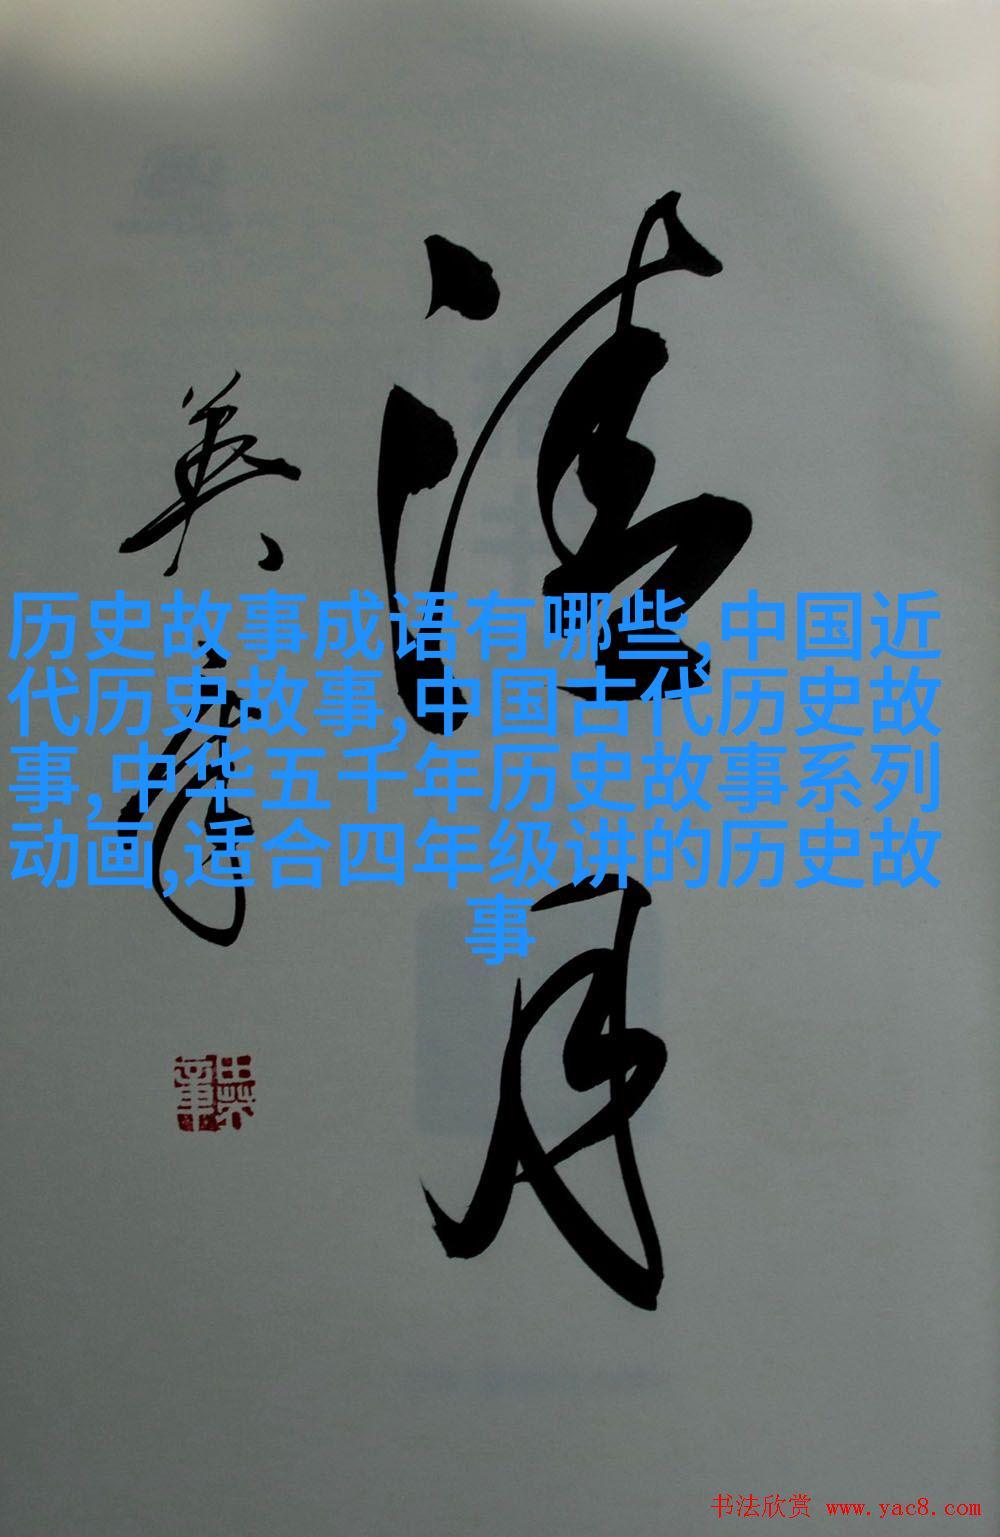 清月
英章
历史故事成语有哪些,中国近
代历史故事,中国古代历史故
事,中华五千年历史故事系列
动画,适合四年级讲的历史故
事
书法欣赏 www.yac8.com